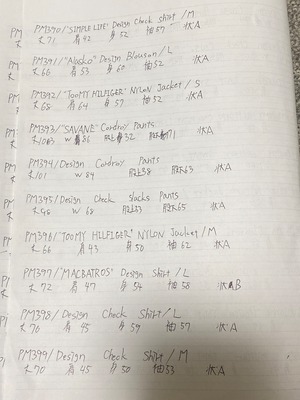 PM390/"SIMPLE LIFE" Design Check Shirt/M
丈71 肩42 身52 袖57 状A
PM391/"Alasko" Design Blouson/L
丈66 肩53 身60 袖52 状A
PM392/"TOMMY HILFIGER" NYLON Jacket/S
丈68 肩64 身57 袖52 状A
PM393/"SAVANE" Cordroy Pants
W 86 股上32 股下71 状A
PM394/Design Cordroy Pants
丈101 W 84 股上38 股下63 状A
PM395/Design Check Slacks Pants
W 68 股下65 状A
PM396/"TOMMY HILFIGER" NYLON Jacket/M
丈66 肩43 身50 袖62 状A
PM397/"MACBATROS" Design Shirt/L
丈72 肩47 身54 袖58 状B
PM398/Design Check Shirt/L
丈76 肩45 身59 袖57 状A
PM399/Design Check Shirt/M
丈70 肩45 身50 袖53 状A